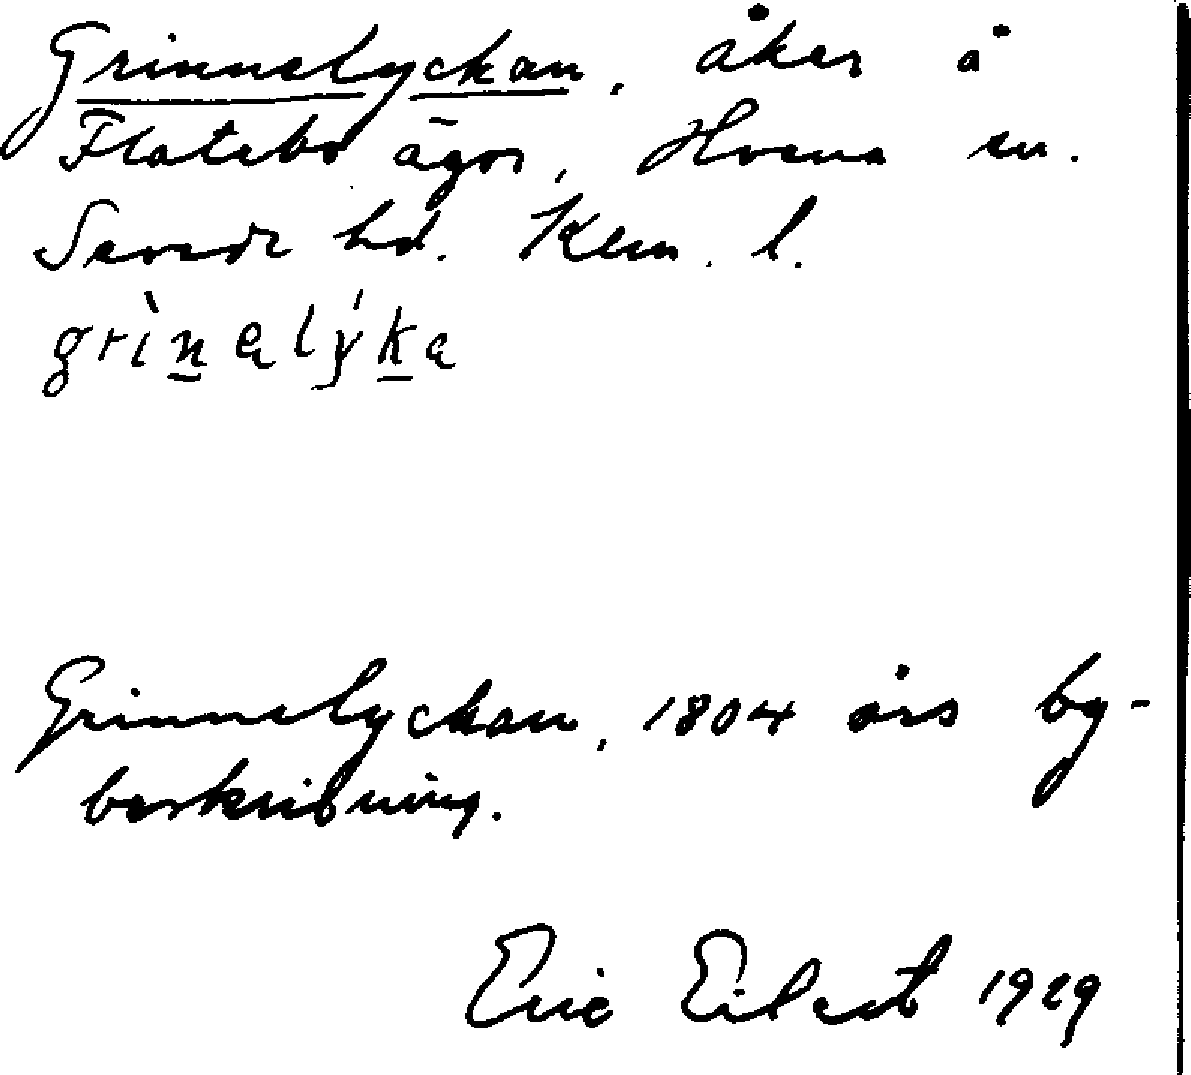 Grinnelyckan, åker å
Flatebo ägor, Hvena sn.
Sevede hd. Klm. l.
grìnelýka
Grinnelyckan, 1804 års by-
beskrivning.
Eric Eilert 1929